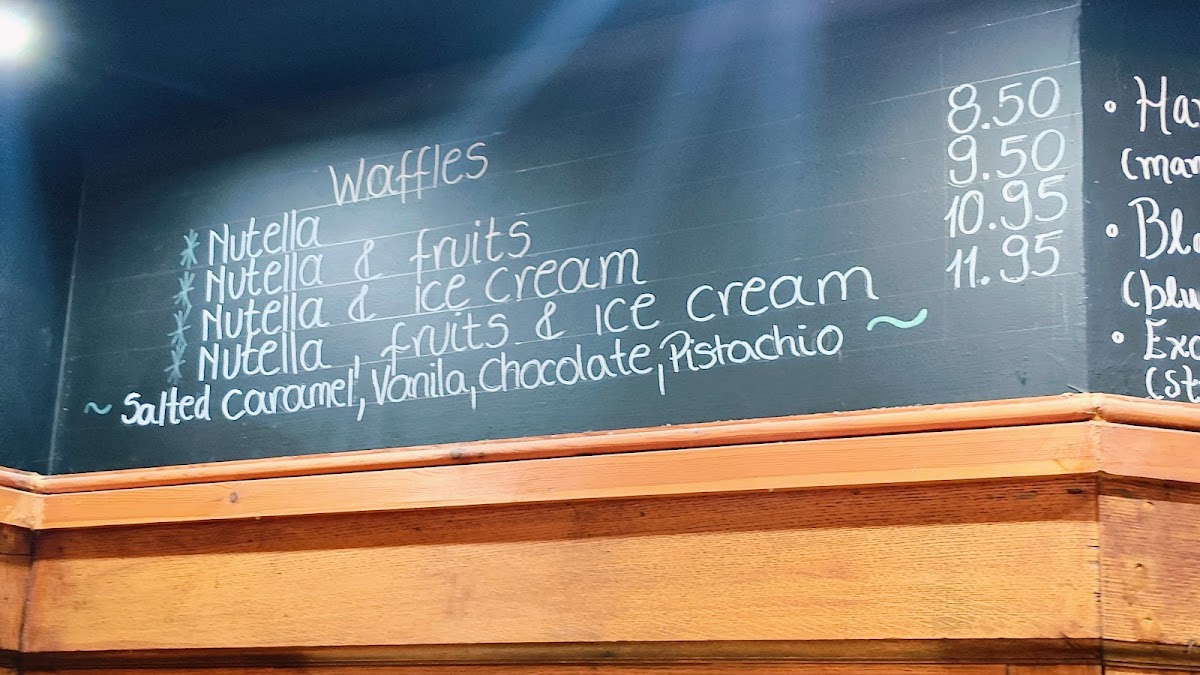 Waffles
* Nutella 8.50
* Nutella & fruits 9.50
* Nutella & ice cream 10.95
* Nutella, fruits & ice cream 11.95
~ Salted Caramel, Vanila, Chocolate, Pistachio ~